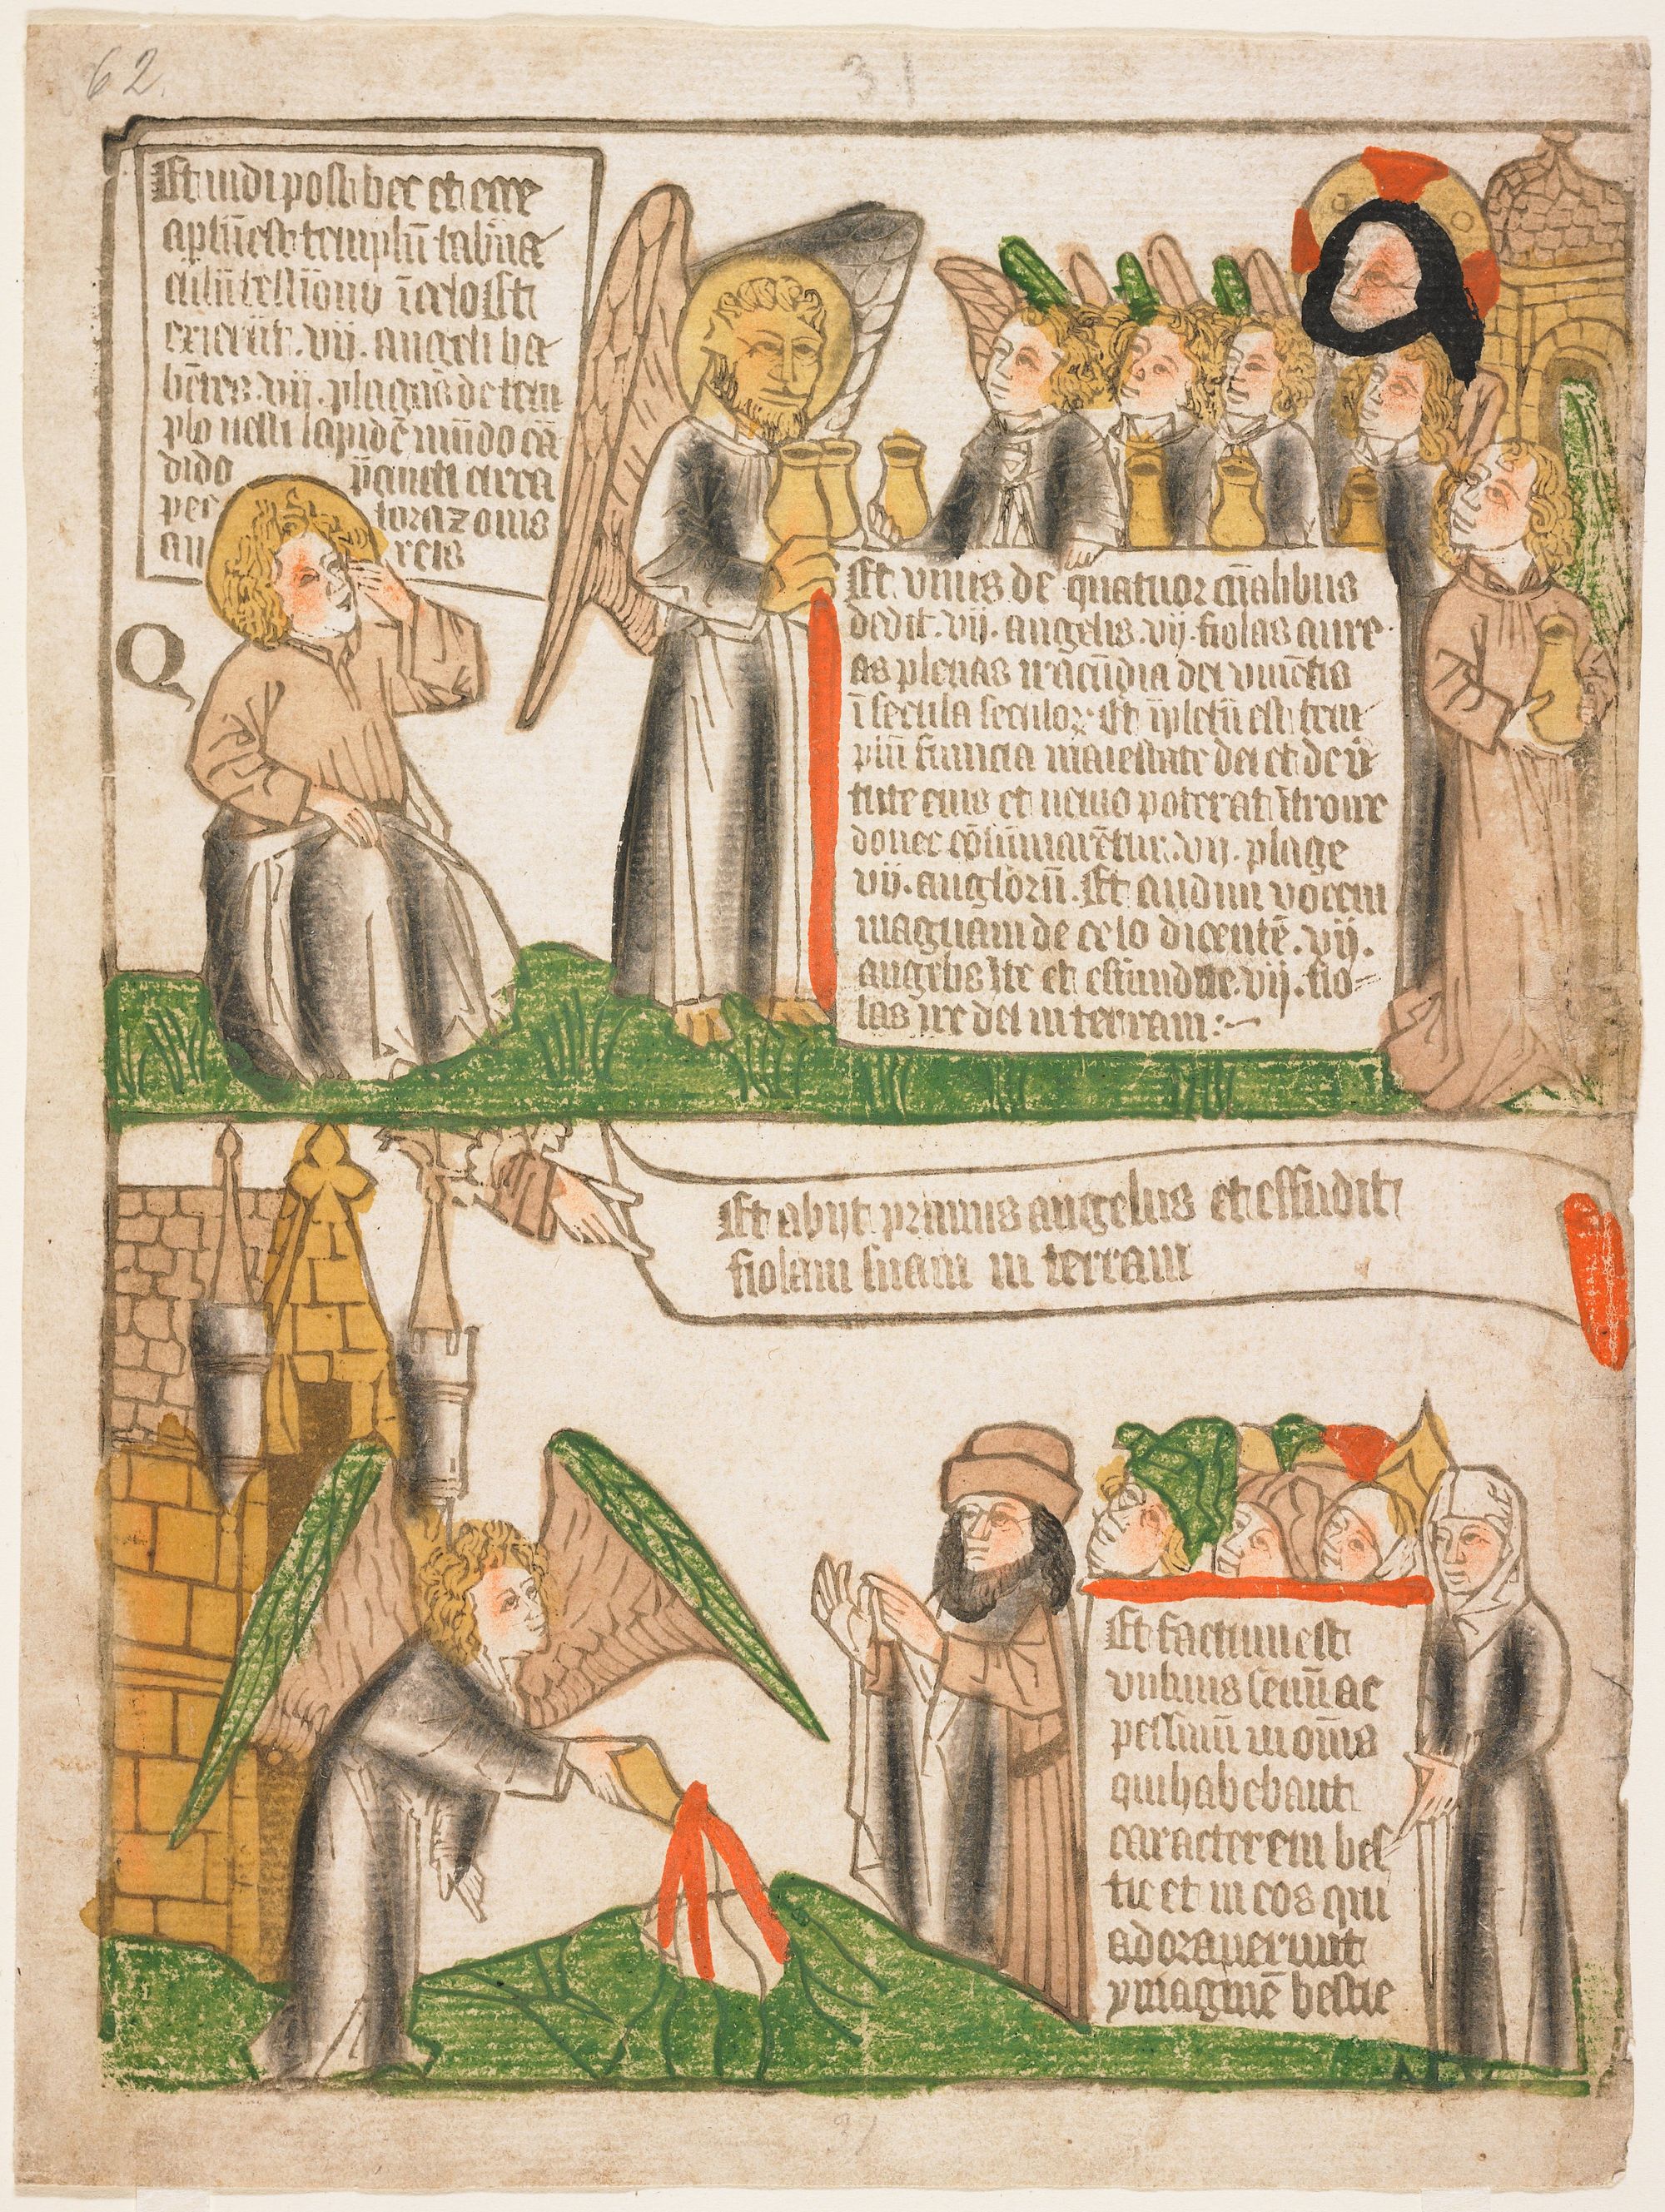 62.
31
Et uidi post hec et ecce
aptū est templū tab̄na
culi testīoniī ī celo Et
exierūt .vij. angeli ha
bētes .vij. plagas de tem
plo uesti lapidē mūdo cā
dido p̄cincti circa
pec toraz onis
au reis
Q
Et vnus de quatuor aīalibus
dedit .vij. angelis .vij. fiolas aure
as plenas iracūdia dei viuētis
ī secula seculoꝝ Et īpletū est tem
plū fumo a maiestate dei et de v̄
tute eius et nemo poterat ītroire
donec cōsūmarētur .vij. plage
vij. anglorū. Et audiui vocem
magnam de celo dicentē .vij.
angelis Ite et effundite .vij. fio=
las ire dei in terram :~
Et abijt primus angelus et effudit
fiolam suam in terram
Et factum est
vulnus seuū ac
pessimū in om̄ia
qui habebant
caracterem bes
tie et in eos qui
adorauerunt
ymaginē bestie
31